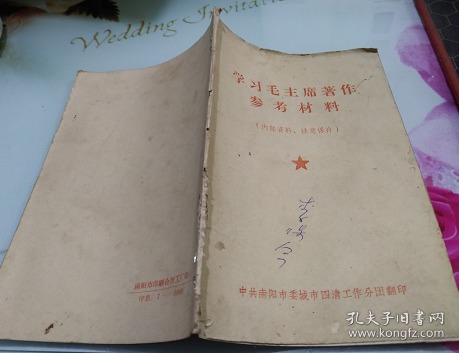 Wedding Invitation
学习毛主席著作
参考材料
（内部资料、注意保存）
中共南阳市委城市四清工作分团翻印
孔夫子旧书网
www.kongfz.com